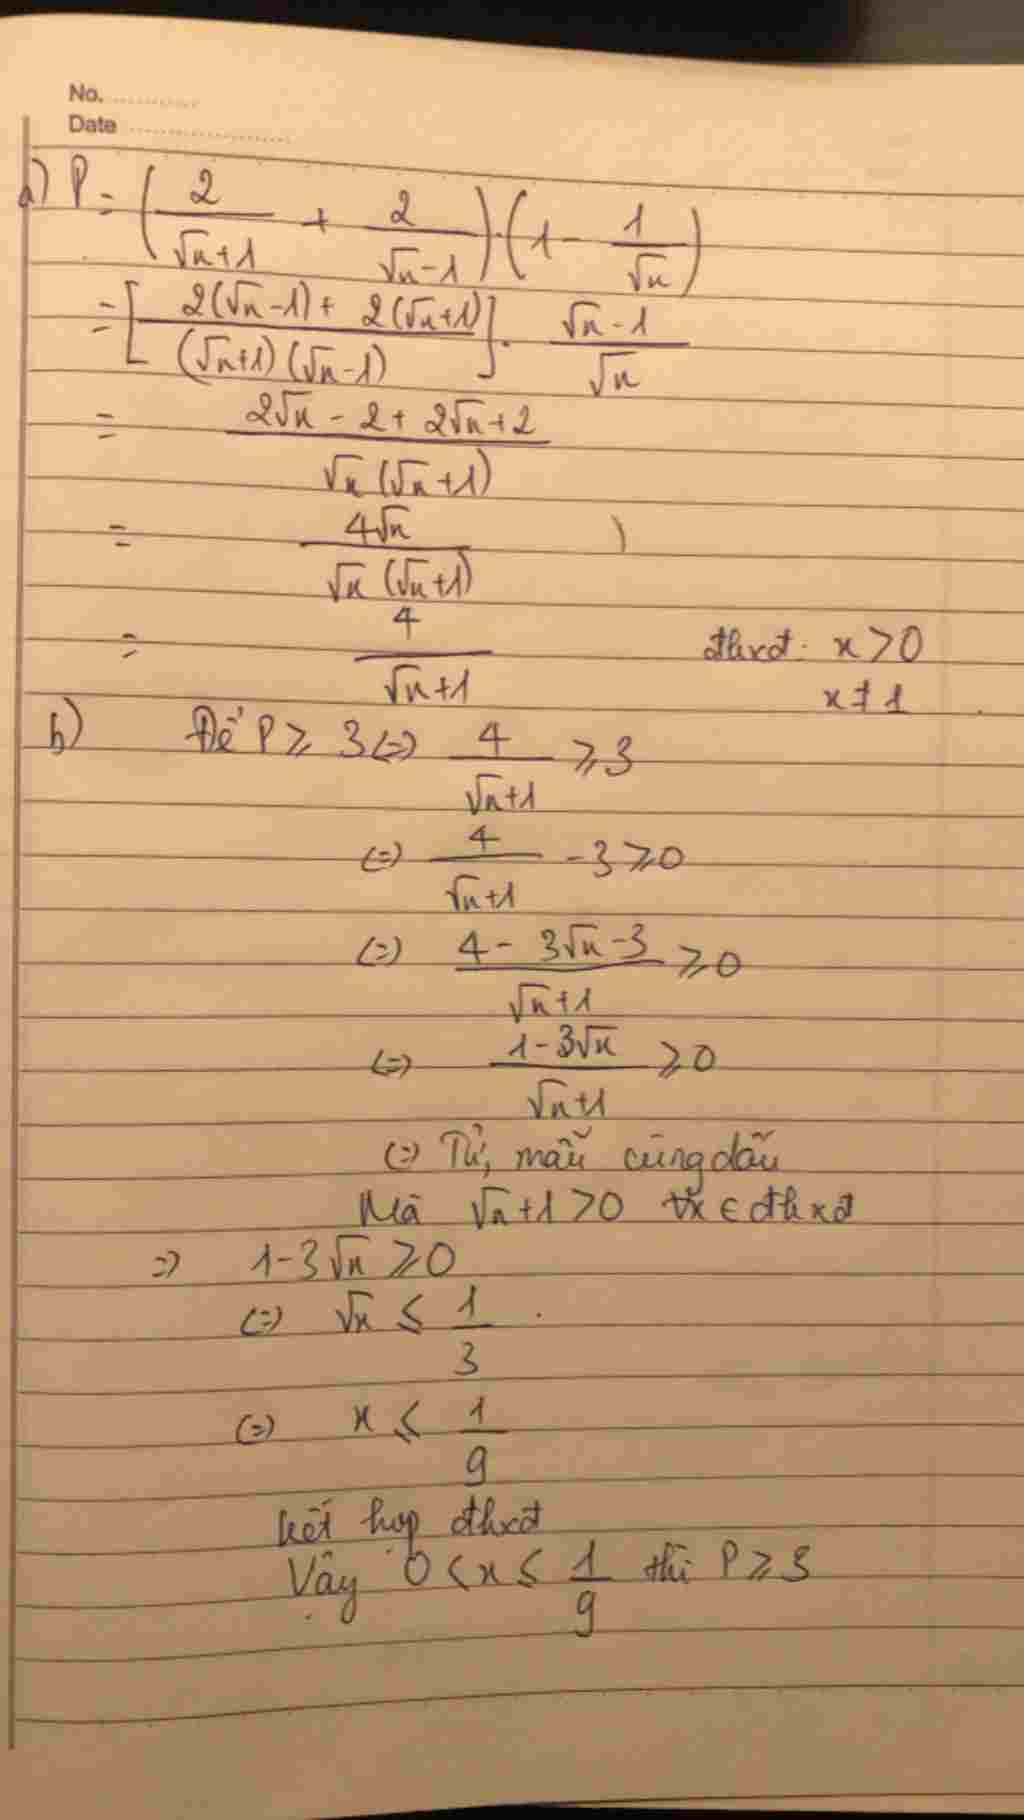 No. ............
Date ......................
a) P = (2/(√x+1) + 2/(√x-1)) · (1 - 1/√x)
= [(2(√x-1) + 2(√x+1))/((√x+1)(√x-1))] · (√x-1)/√x
= (2√x - 2 + 2√x + 2)/(√x(√x+1))
= 4√x/(√x(√x+1))
= 4/(√x+1) đkxđ: x > 0
x ≠ 1
b) Để P ≥ 3 (=) 4/(√x+1) ≥ 3
(=) 4/(√x+1) - 3 ≥ 0
(=) (4 - 3√x - 3)/(√x+1) ≥ 0
(=) (1 - 3√x)/(√x+1) ≥ 0
(=) Tử, mẫu cùng dấu
Mà √x+1 > 0 ∀x ∈ đkxđ
=) 1 - 3√x ≥ 0
(=) √x ≤ 1/3
(=) x ≤ 1/9
Kết hợp đkxđ
Vậy 0 < x ≤ 1/9 thì P ≥ 3